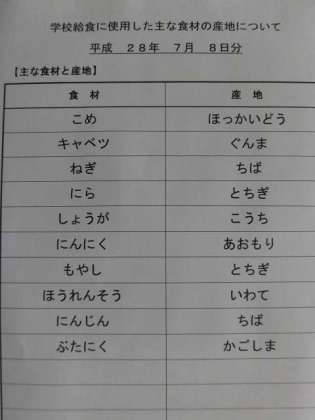 学校給食に使用した主な食材の産地について
平成 28年 7月 8日分
【主な食材と産地】
食 材 産 地
こめ ほっかいどう
キャベツ ぐんま
ねぎ ちば
にら とちぎ
しょうが こうち
にんにく あおもり
もやし とちぎ
ほうれんそう いわて
にんじん ちば
ぶたにく かごしま